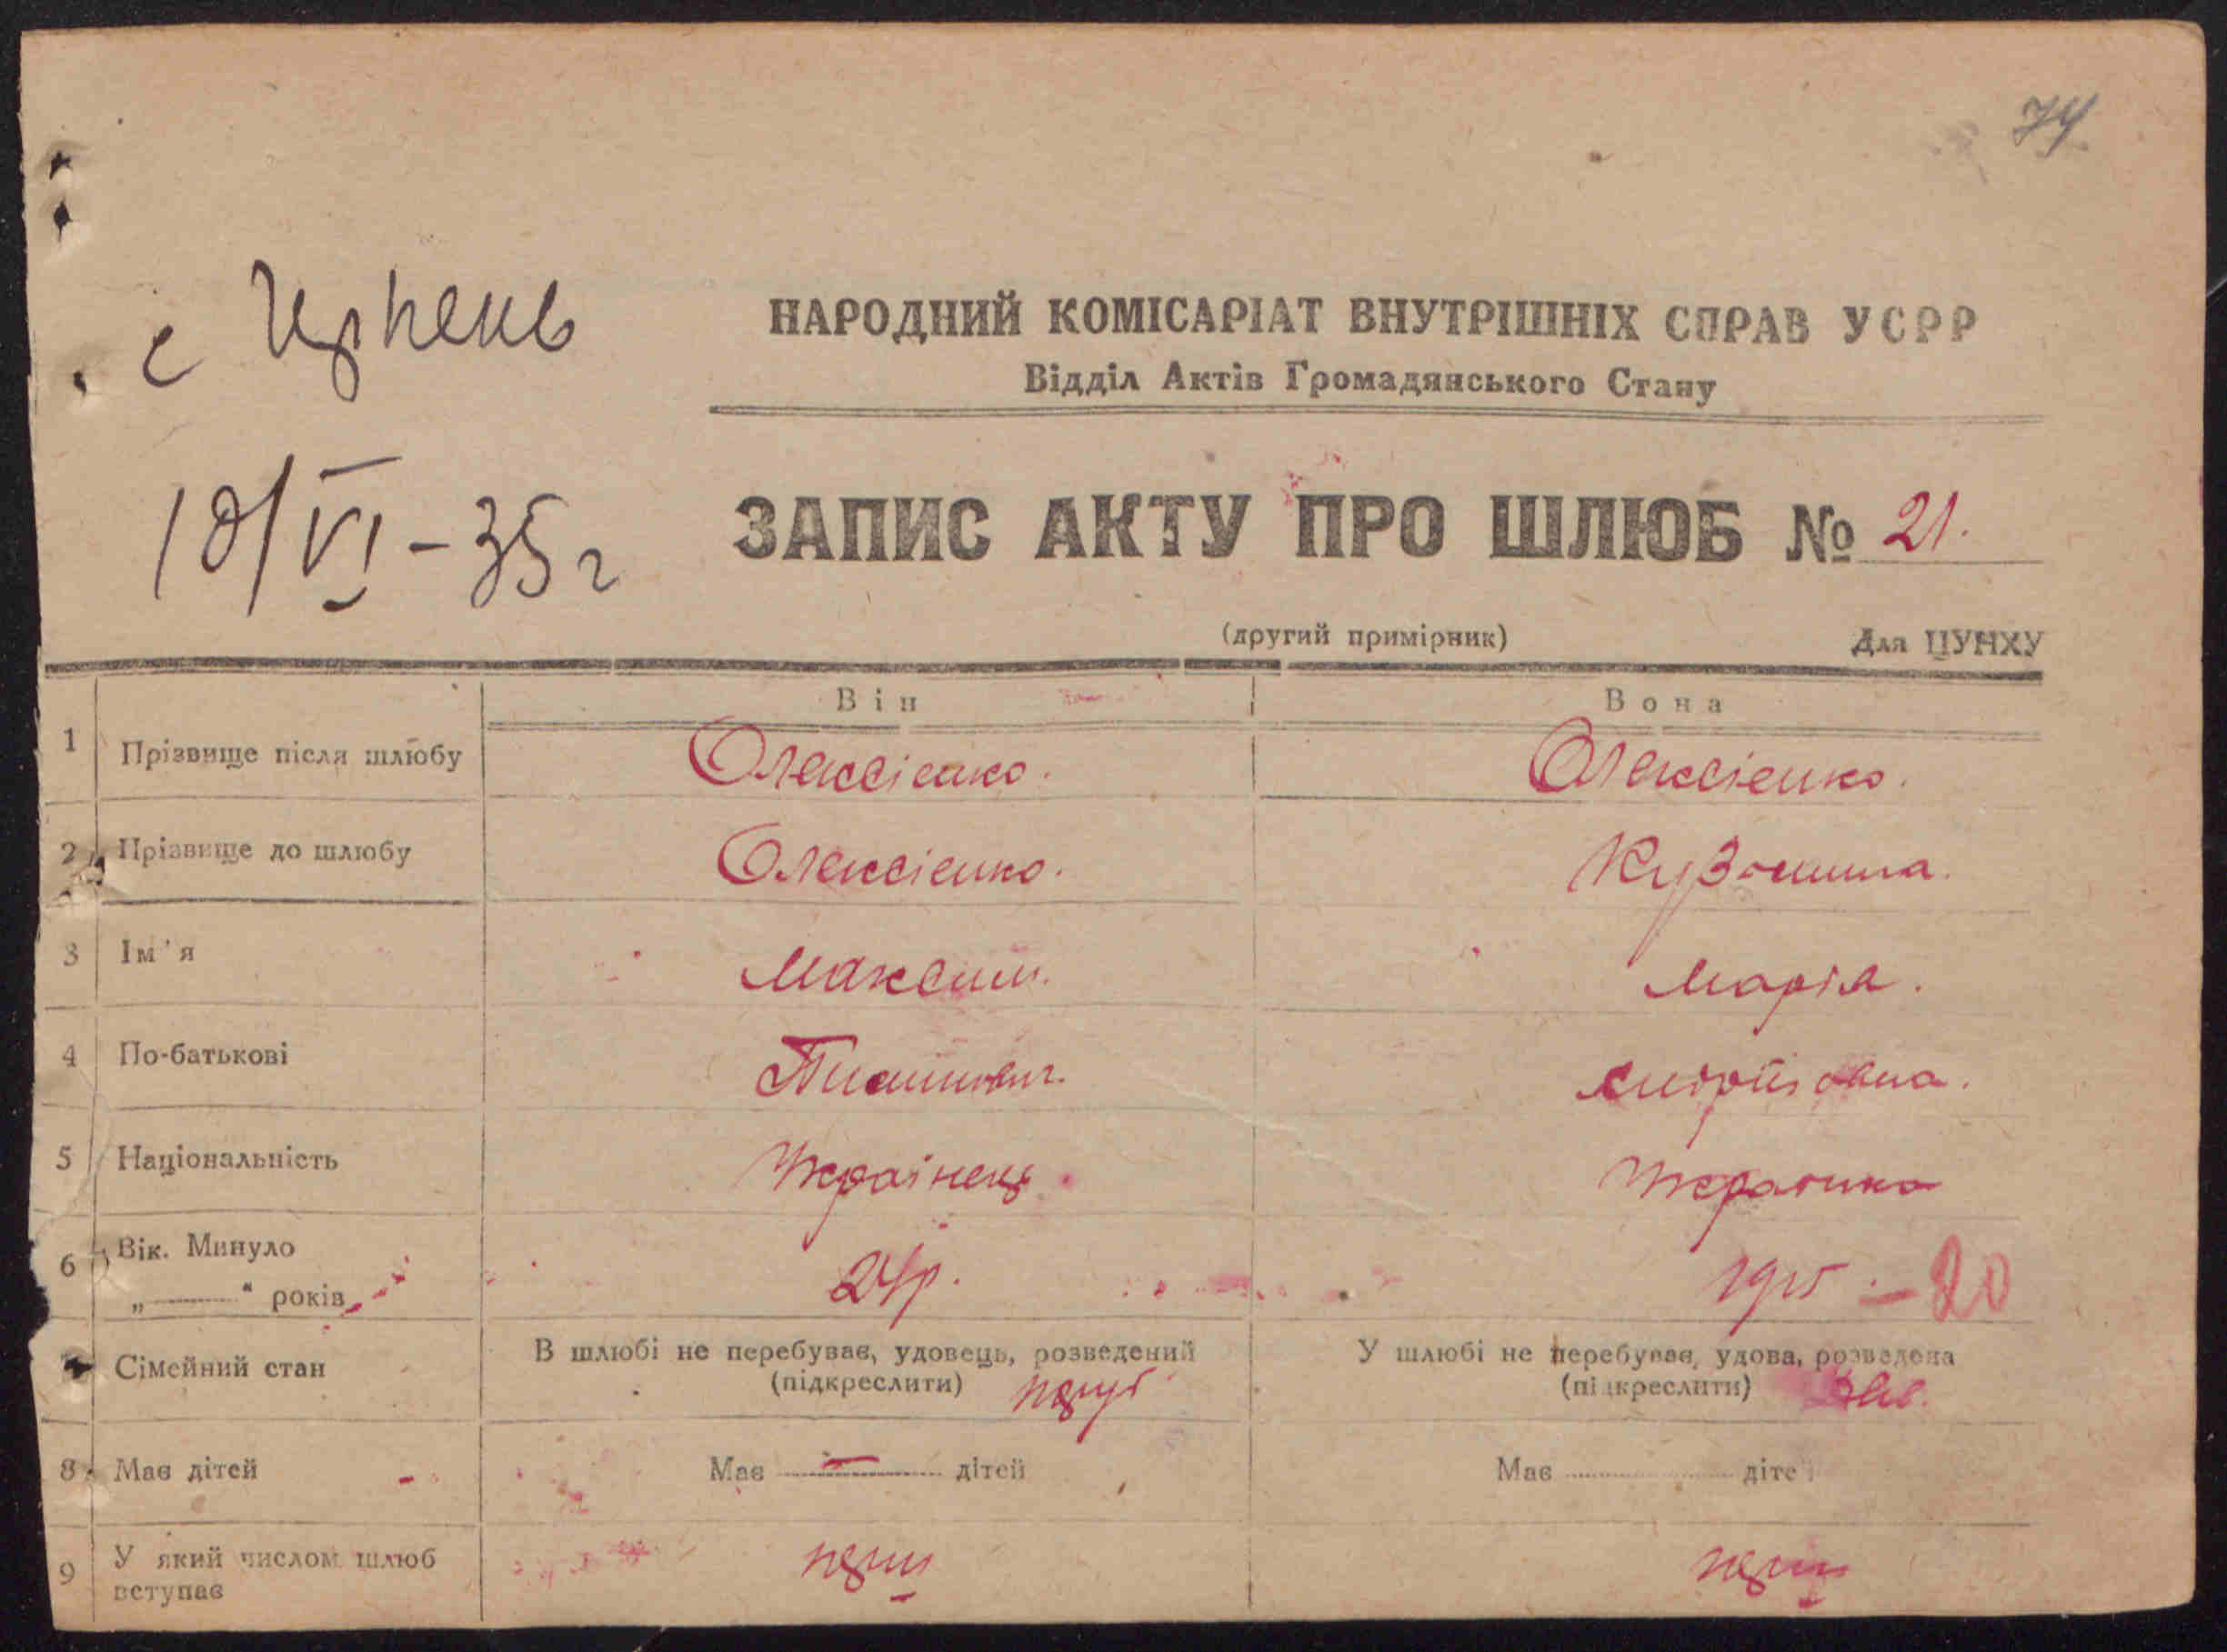 74
с Ірпень
НАРОДНИЙ КОМІСАРІАТ ВНУТРІШНІХ СПРАВ УСРР
Відділ Актів Громадянського Стану
18/VI-35 г
ЗАПИС АКТУ ПРО ШЛЮБ № 21.
(другий примірник) Для ЦУНХУ
Він Вона
1 Прізвище після шлюбу Олексієнко. Олексієнко.
2 Прізвище до шлюбу Олексієнко.
3 Ім'я Максим. Марія.
4 По-батькові
5 Національність Українець Українка
6 Вік. Минуло
„ " років 24 р. 1915 - 20
Сімейний стан В шлюбі не перебував, удовець, розведений У шлюбі не перебував, удова, розведена
(підкреслити) (підкреслити)
8 Має дітей Має — дітей Має дітей
9 У який числом шлюб
вступає перш перш